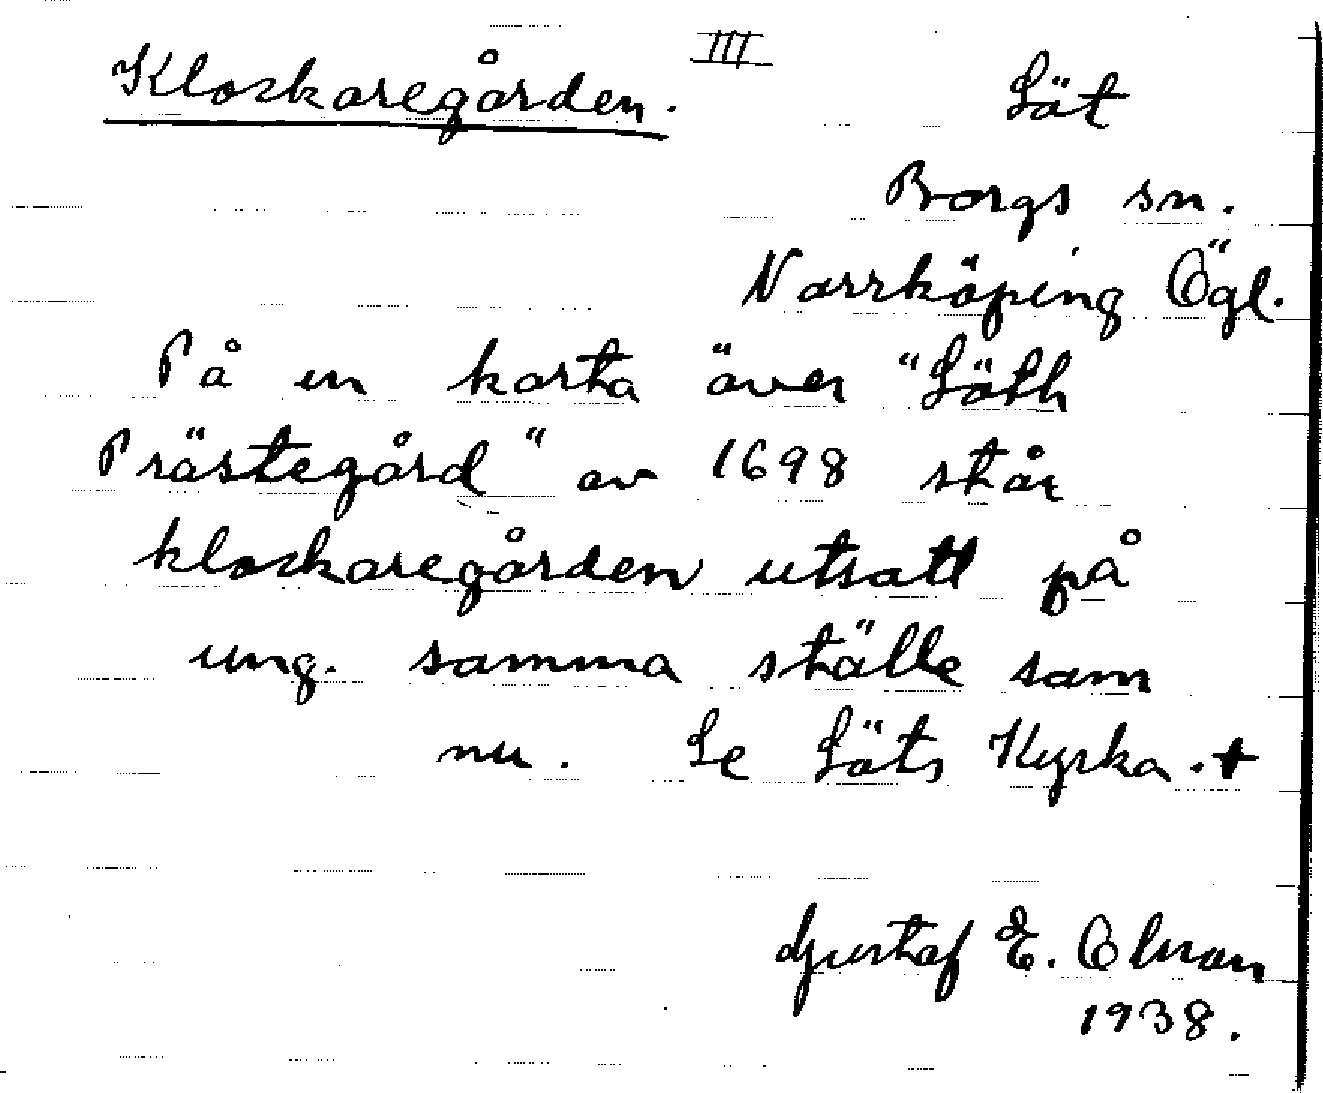 Klockaregården. III Löt
Borgs sn.
Norrköping Ögl.
På en karta över "Löth
Prästegård" av 1698 står
klockaregården utsatt på
ung. samma ställe som
nu. Se Löts Kyrka. +
Gustaf E. Olson
1938.